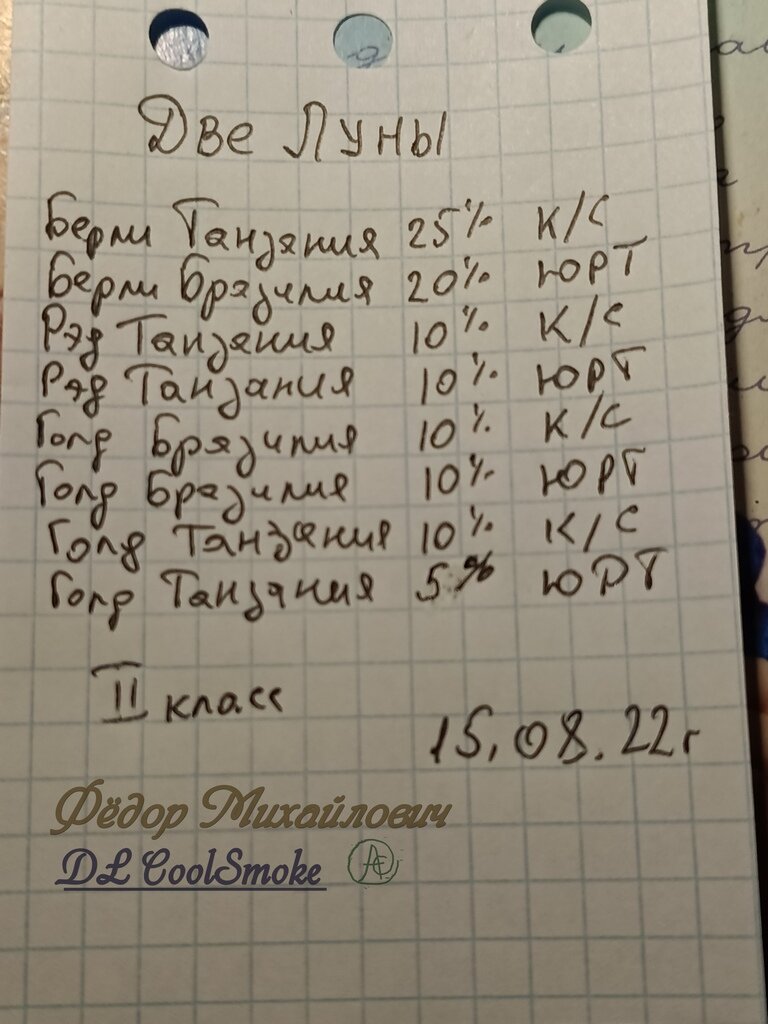 Две Луны
Берли Танзания 25% К/С
Берли Бразилия 20% ЮРТ
Рэд Танзания 10% К/С
Рэд Танзания 10% ЮРТ
Голд Бразилия 10% К/С
Голд Бразилия 10% ЮРТ
Голд Танзания 10% К/С
Голд Танзания 5% ЮРТ
II класс
15.08.22г
Фёдор Михайлович
DL CoolSmoke